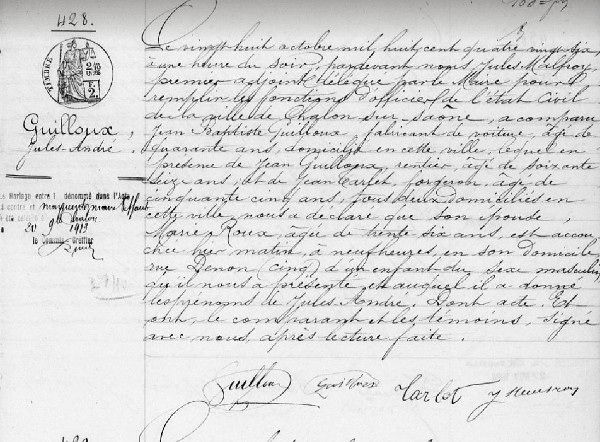 428.
TIMBRE
Guilloux,
Jules-André.
Le Mariage entre l dénommé dans l'Acte
1919
le Commis-Greffier
Le vingt-huit octobre mil huit cent quatre vingt six,
à une heure du soir, pardevant nous, Jules
premier adjoint délégué par le Maire pour
remplir les fonctions d'officier de l'état Civil
de la ville de Chalon sur Saône, a comparu
Jean Baptiste Guilloux, fabricant de voiture, âgé de
quarante ans, domicilié en cette ville, lequel en
présence de Jean Guilloux, rentier, âgé de soixante
seize ans, et de Jean Tarlet, forgeron, âgé de
cinquante cinq ans, tous deux domiciliés en
cette ville, nous a déclaré que son épouse,
Marie Roux, âgée de trente six ans, est accou-
chée hier matin, à neuf heures, en son domicile,
rue Denon (cinq) d'un enfant du sexe masculin,
qu'il nous a présenté, et auquel il a donné
les prénoms de Jules André. Dont acte. Et
ont, le comparant et les témoins, signé
avec nous, après lecture faite.
Guilloux Guilloux Tarlet